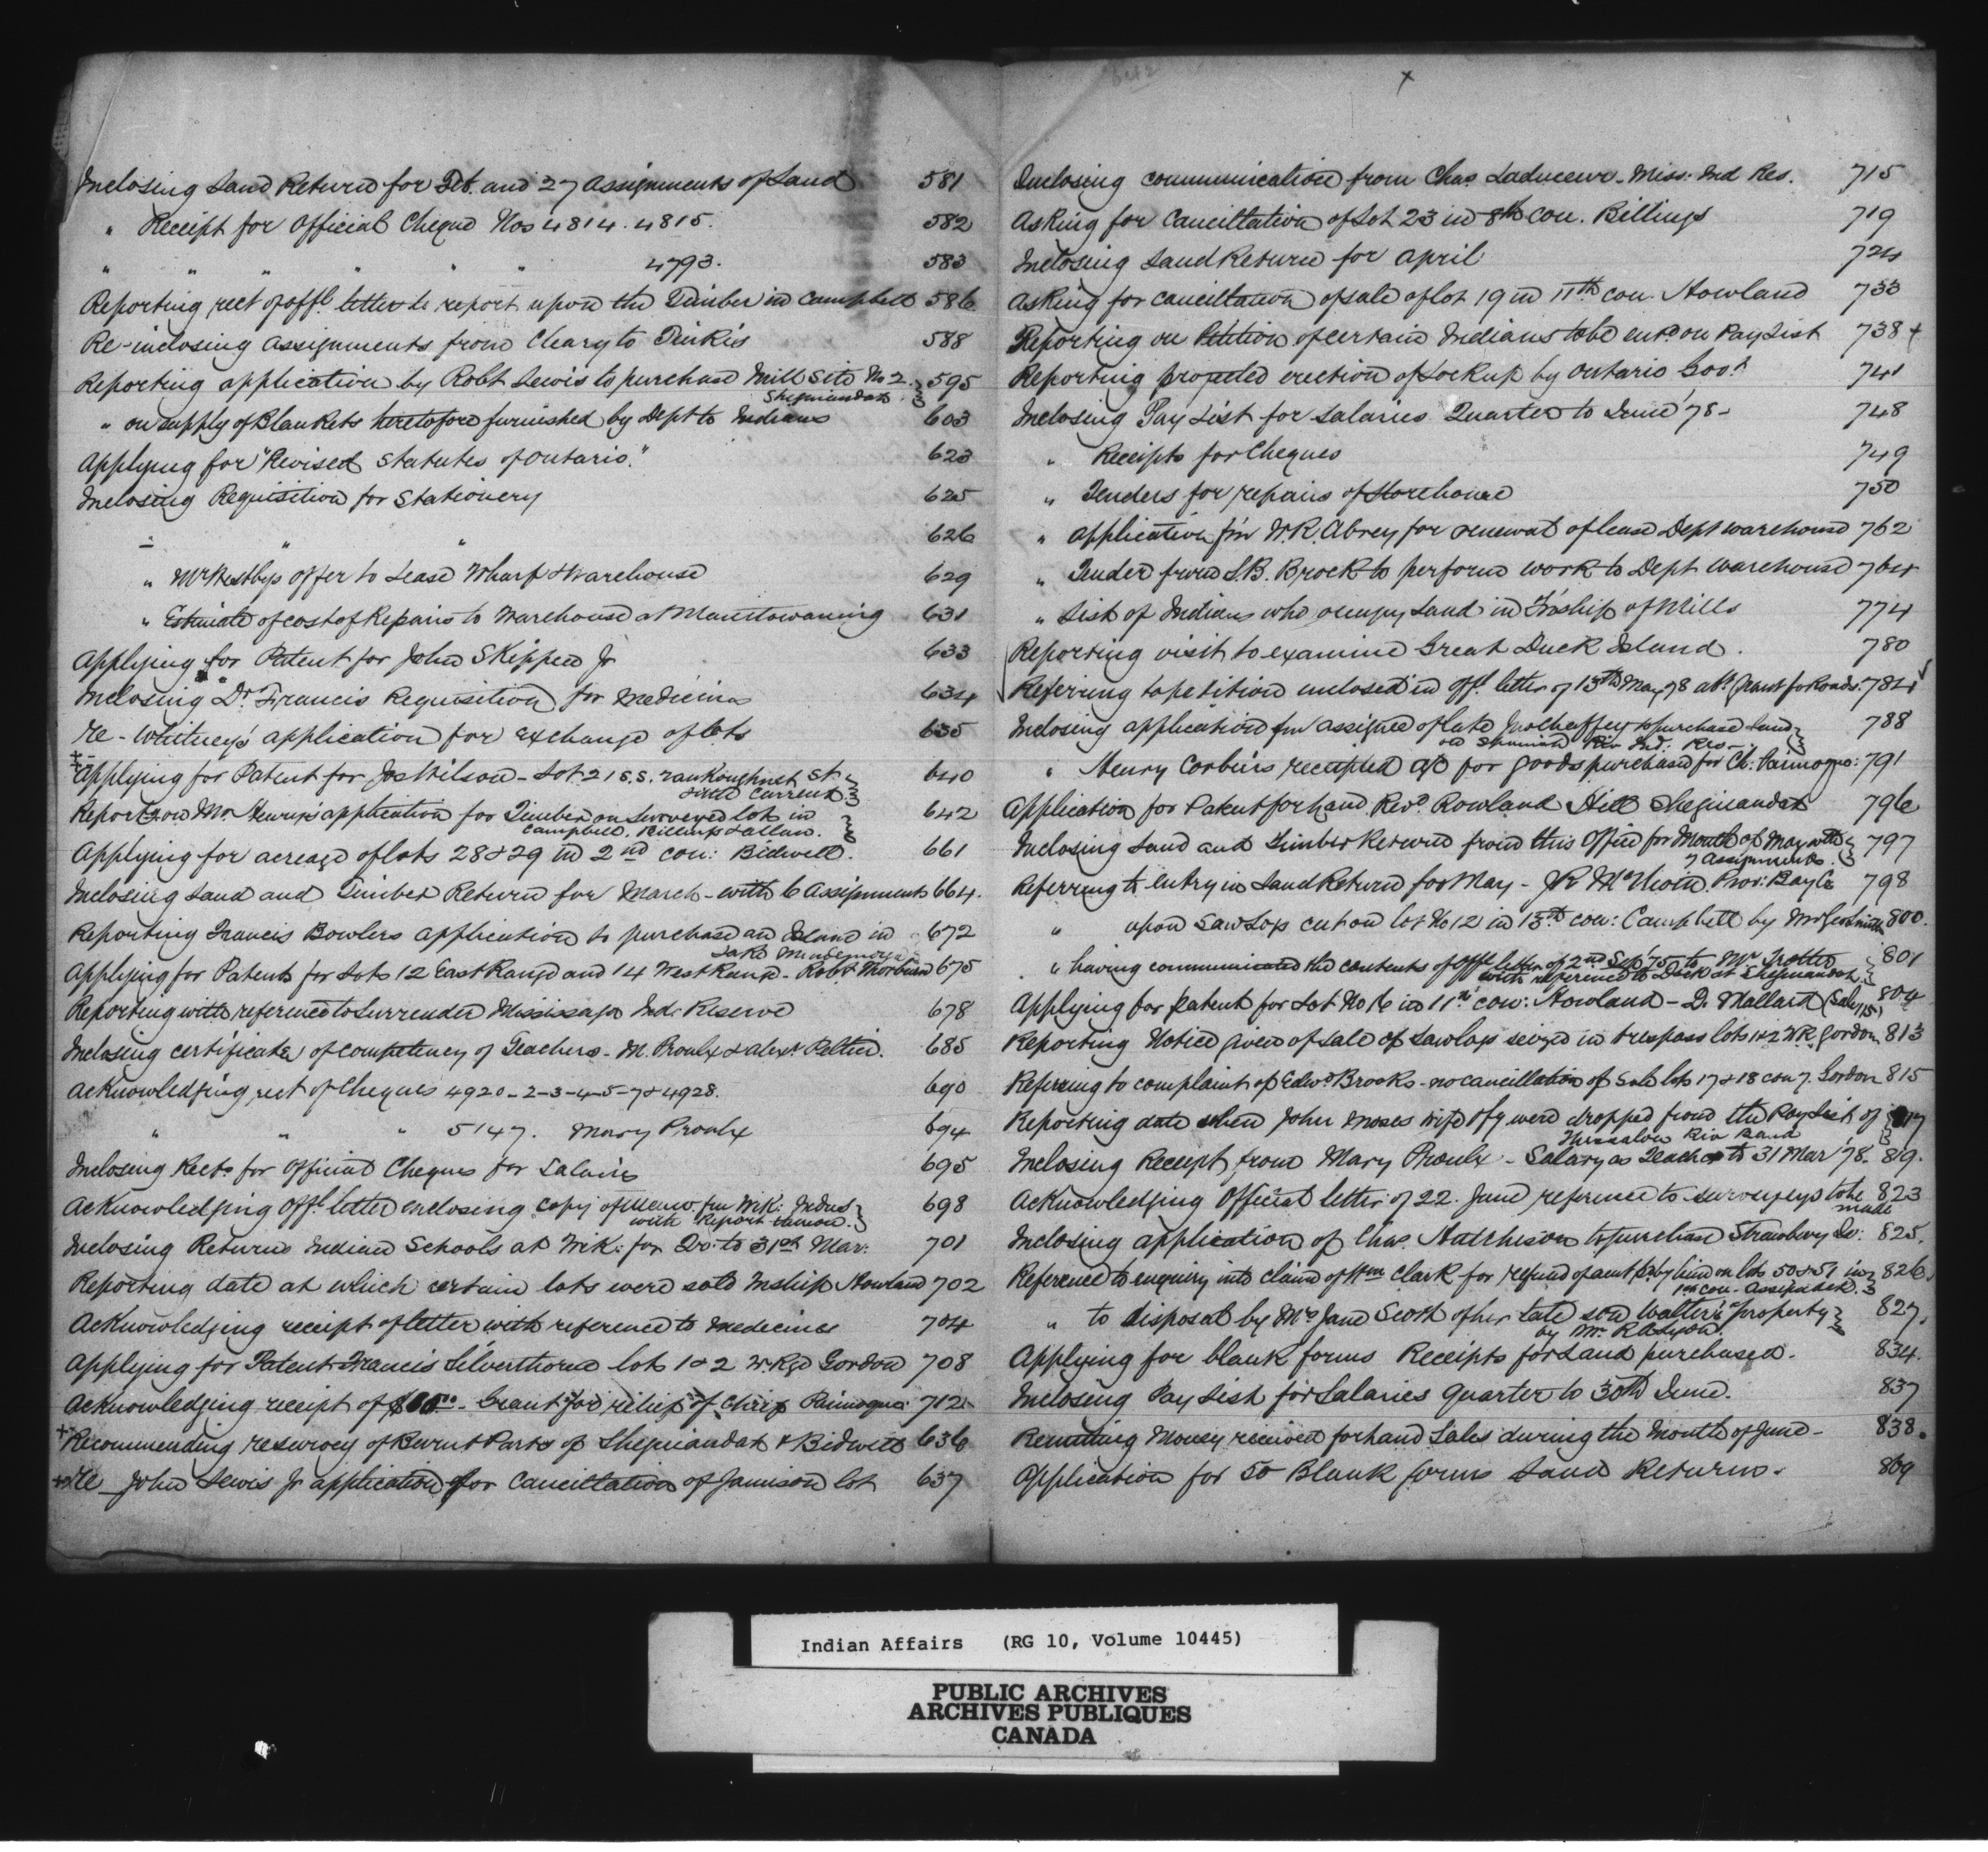 Inclosing Land Return for Feb. and 27 Assignments of Land 581
" Receipt for Official Cheque Nos 4814. 4815. 582
" " " " " " 4793. 583
Reporting rect of offl. letter to report upon the Timber in Campbell 586
Re-inclosing assignments from Cleary to Tinkis 588
Reporting application by Robt Lewis to purchase Mill Site No 2. 595
Sheguiandah
" on supply of Blankets heretofore furnished by Dept to Indians 603
Applying for "Revised Statutes of Ontario." 623
Inclosing Requisition for Stationery 625
" " " 626
" Mr Westbys offer to Lease Wharf & Warehouse 629
" Estimate of cost of Repairs to Warehouse at Manitowaning 631
Applying for Patent for John Skippen Jr 633
Inclosing Dr. Francis Requisition for Medicines 634
re-Whitney's application for exchange of lots 635
Applying for Patent for Jos Wilson - Lot 21 S.S. Vankoughnet St. 640
Little Current
Report on Mr Henry's application for Timber on Surveyed lots in 642
Campbell, Billings & Allan.
Applying for acreage of lots 28 & 29 in 2nd con: Bidwell. 661
Inclosing Land and Timber Return for March - with 6 Assignments 664.
Reporting Francis Bowlers application to purchase an Island in 672
Lake Mindemoya
Applying for Patents for Lots 12 East Range and 14 West Range - Robt Thorburn 675
Reporting with reference to Surrender Mississaga Ind. Reserve 678
Inclosing certificate of competency of Teachers - M. Proulx & Alexr Peltier. 685
Acknowledging rect of Cheques 4920-2-3-4-5-7 & 4928. 690
" " " 5147. Mary Proulx 694
Inclosing Rects. for Official Cheques for Salaries 695
Acknowledging Offl letter enclosing copy of Memo. fm Wik: Indns 698
with Report thereon.
Inclosing Returns Indian Schools at Wik: for Qr: to 31st Mar: 701
Reporting date at which certain lots were sold Tnship Howland 702
Acknowledging receipt of letter with reference to Medicines 704
Applying for Patent Francis Silverthorne lots 1 & 2 W. Rge Gordon 708
Acknowledging receipt of Grant for relief of Chief Paimoqua 712
Recommending resurvey of Burnt Parts of Sheguiandah & Bidwell 636
Re John Lewis Jr application for Cancillation of Jamison lot 637
x
Inclosing communication from Chas Laduceur - Miss: Ind Res. 715
Asking for Cancillation of Lot 23 in 8th con. Billings 719
Inclosing Land Return for April 724
Asking for cancillation of sale of lot 19 in 11th con. Howland 733
Reporting on Petition of certain Indians to be entd on Pay List 738 +
Reporting projected erection of Lockup by Ontario Govt 741
Inclosing Pay List for Salaries Quarter to June '78 - 748
" Receipts for Cheques 749
" Tenders for repairs of Storehouse 750
" application fm W.R. Abrey for renewal of lease Dept warehouse 762
" Tender from S.B. Brock to perform work to Dept Warehouse 764
" List of Indians who occupy Land in Tnship of Mills 774
Reporting visit to examine Great Duck Island. 780
Refering to petition enclosed in offl letter of 13th May 78 abt. grant for Roads. 784
Inclosing application fm assignee of late to purchase Land 788
on Spanish Riv Ind: Res -
" Henry Corbiers receipted a/c for goods purchased for Ch: Paimoqua: 791
Application for Patent for Land Revd. Rowland Hill Sheguiandah 796
Inclosing Land and Timber Return from this Office for Month of May with 797
7 Assignments
Referring to entry in Land Return for May - Prov: Bay 798
" upon Saw Logs cut on lot No 12 in 13th con: Campbell by Mr Geo Smith 800.
" having communicated the contents of offl letter of 2nd Sep '75 to Mr Trotter 801
with reference to Dock at Sheguiandah
Applying for patent for Lot No 6 in 11th con: Howland - D. Mallard (Sale 115) 804
Reporting Notice given of sale of Sawlogs seized in trespass lots 1 & 2 W.R. Gordon 813
Referring to complaint of Edwd Brooks - no cancillation of Sale lots 17 & 18 con 7. Gordon 815
Reporting date when John Moses wife & fy were dropped from the Pay List of 817
Thessalon Riv Band
Inclosing Receipt from Mary Proulx - Salary as Teacher to 31 Mar '78. 819.
Acknowledging Official letter of 22. June reference to surveys to be 823
made
Inclosing application of Chas. Hutchison to purchase Strawberry Is: 825.
Reference to enquiry into claim of Wm Clark for refund of amt pd by him on lots 50 & 51 in 826.
1st con. Assiginack
" to disposal by Mrs Jane Scott of her late son Walter's property 827.
by Mr. R.A. Lyon.
Applying for blank forms Receipts for Land purchased. 834.
Inclosing Pay List for Salaries Quarter to 30th June. 837
Remitting Money received for Land Sales during the Month of June - 838.
Application for 50 Blank forms Land Returns. 869
Indian Affairs (RG 10, Volume 10445)
PUBLIC ARCHIVES
ARCHIVES PUBLIQUES
CANADA